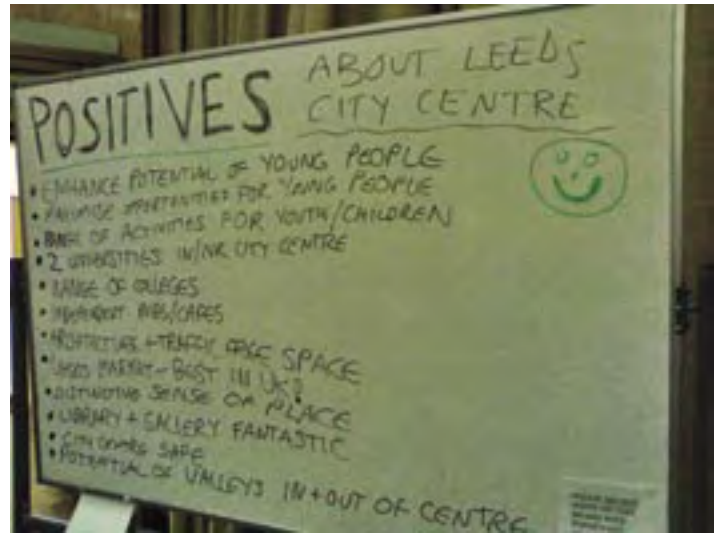 POSITIVES ABOUT LEEDS
CITY CENTRE
• ENHANCE POTENTIAL OF YOUNG PEOPLE
• MAXIMISE OPPORTUNITIES FOR YOUNG PEOPLE
• RANGE OF ACTIVITIES FOR YOUTH/CHILDREN
• 2 UNIVERSITIES IN/NR CITY CENTRE
• RANGE OF COLLEGES
• INDEPENDENT PUBS/CAFES
• ARCHITECTURE + TRAFFIC FREE SPACE
• LEEDS MARKET - BEST IN UK?
• DISTINCTIVE SENSE OF PLACE
• LIBRARY + GALLERY FANTASTIC
• CITY CENTRE SAFE
• POTENTIAL OF VALLEYS IN + OUT OF CENTRE